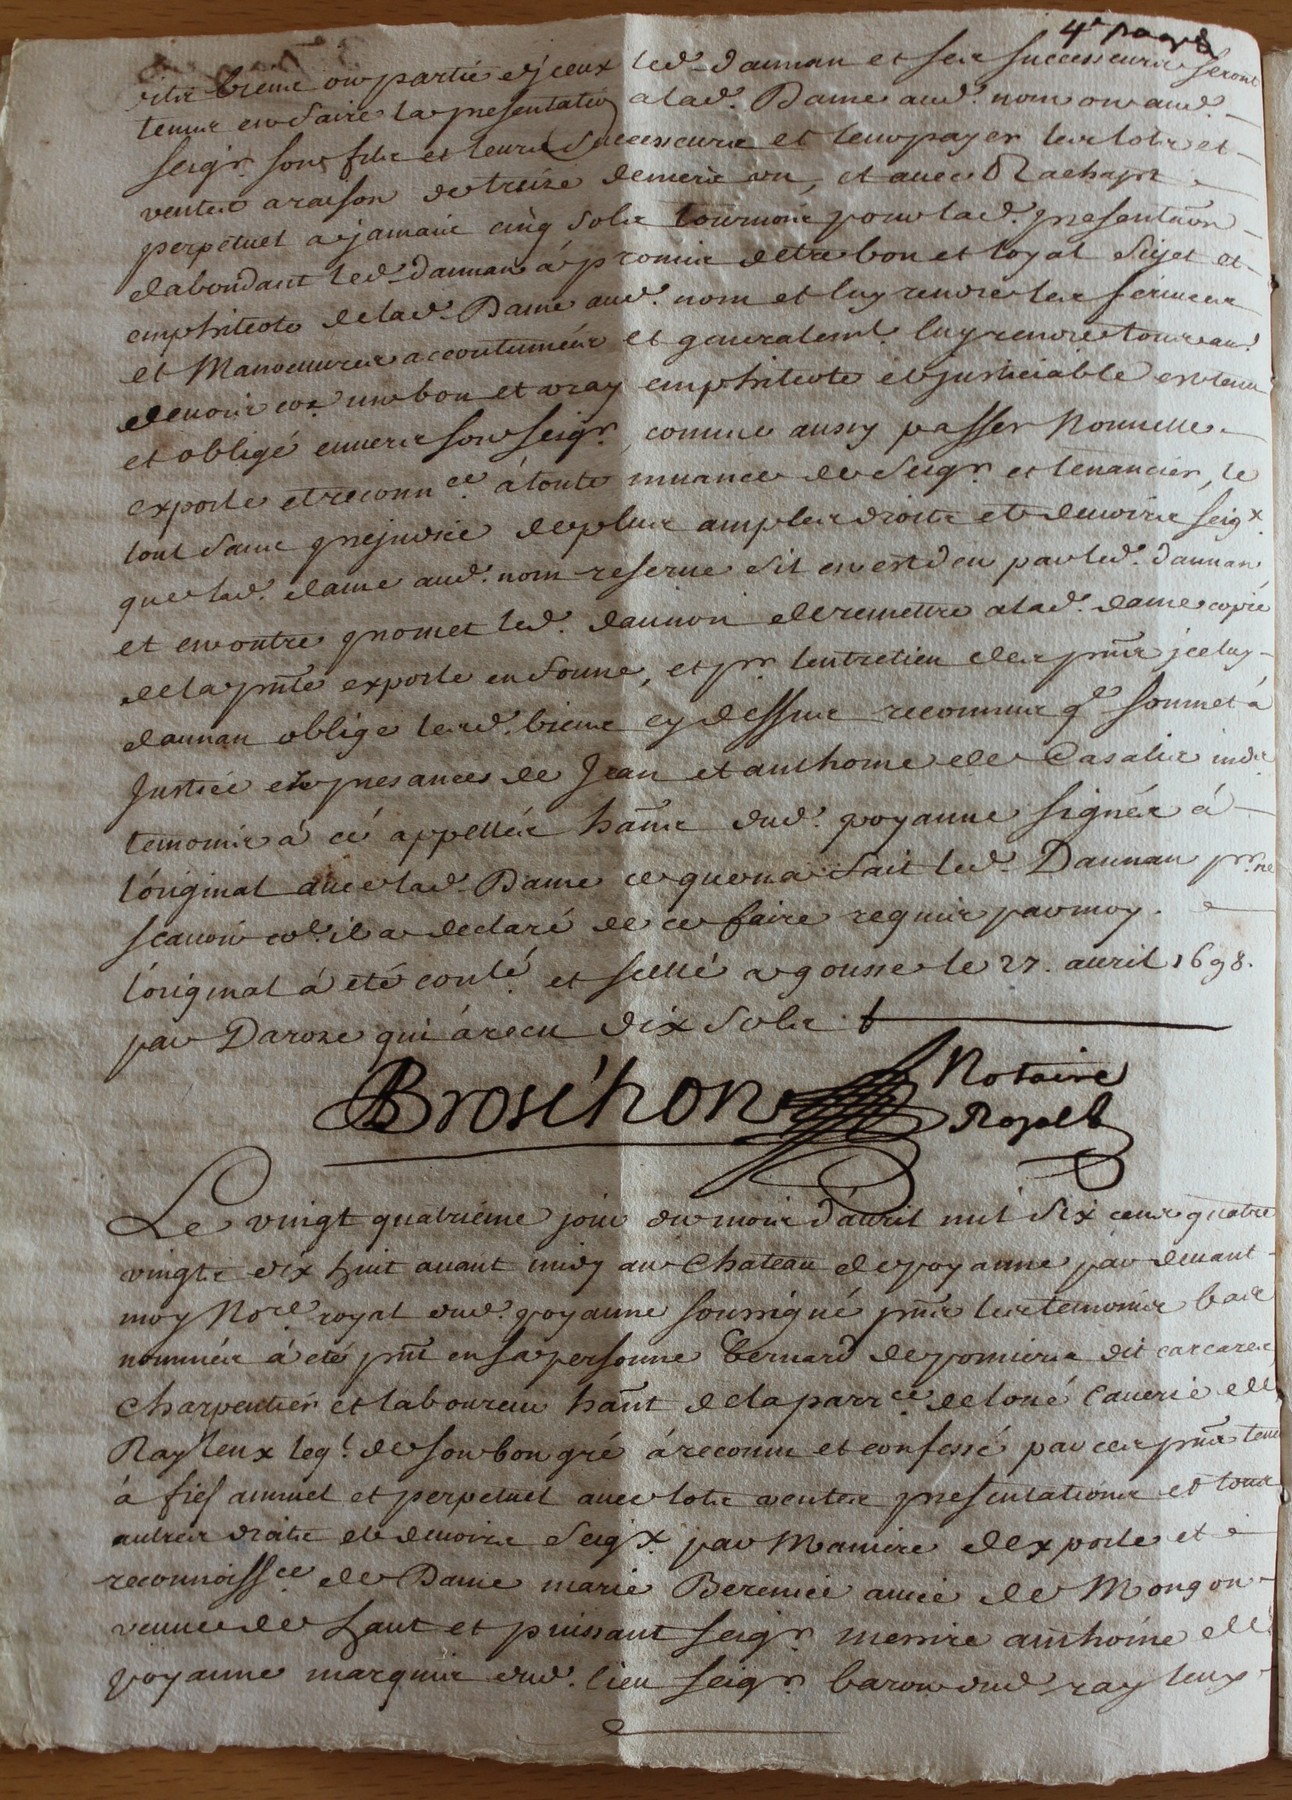 4e page
dits biens ou partie d'jceux led. daunan et ses successeurs seront
tenus en faire la presentatio a lad. Dame aud. nom ou aud.
seigr. son fils et leurs successeurs et leur payer les lots et
ventes a raison de treize deniers un, et avec Rachapt
perpetuel a jamais cinq sols tournois pour lad. presentaon
dabondant led. daunan à promis detre bon et loyal sujet et
emphiteote de lad. Dame aud. nom et luy rendre les
et Manoeuvres accoutumées et generalemt. luy rendre tous
devoir un bon et vray emphiteote et justiciable est tenu
et obligé envers son seigr. comme aussy passer Nouvelle
exporle et reconnce. à toute muance de seigr. et tenancier, le
tout sans prejudice de plus amples droits et devoirs seigx.
que lad. dame aud. nom reserve s'il en est deu par led. daunan
et en outre promet led. daunan de remettre a lad. dame copie
de la pnte exporle en forme, et pr. lentretien des pntes jceluy
daunan oblige lesd. biens cy dessus reconnus qe. soumet à
Justice en presance de Jean et anthoine de Casalis
temoins à ce appellés hans dud. poyanne signés à
l'original avec lad. Dame ce que n'a fait led. Daunan pr. ne
scavoir il a declaré de ce faire requis par moy.
l'original à été conlé. et scellé a gousse le 27. avril 1698.
par Daroze qui à recu dix sols
Brosthon Notaire
Royal
Le vingt quatriéme jour du mois d'avril mil six cens quatre
vingts dix huit avant midy au Chateau de poyanne par devant
moy Nore. royal dud. poyanne soussigné pns les temoins bas
nommés à été pnt en sa personne Bernard de pomiers dit carcares
Charpentier et laboureur hant de la parrce. de loué Caverie de
Raysleux leql. de son bon gré à reconnu et confessé par ces pntes tenir
à fief annuel et perpetuel avec lots ventes presentations et tous
autres droits et devoirs seigx. par Maniere dexporle et
reconnoissce. de Dame marie Berenice avice de Mongon
veuve de haut et puissant seigr. messire anthoine de
poyanne marquis dud. lieu seigr. baron dud. raysleux